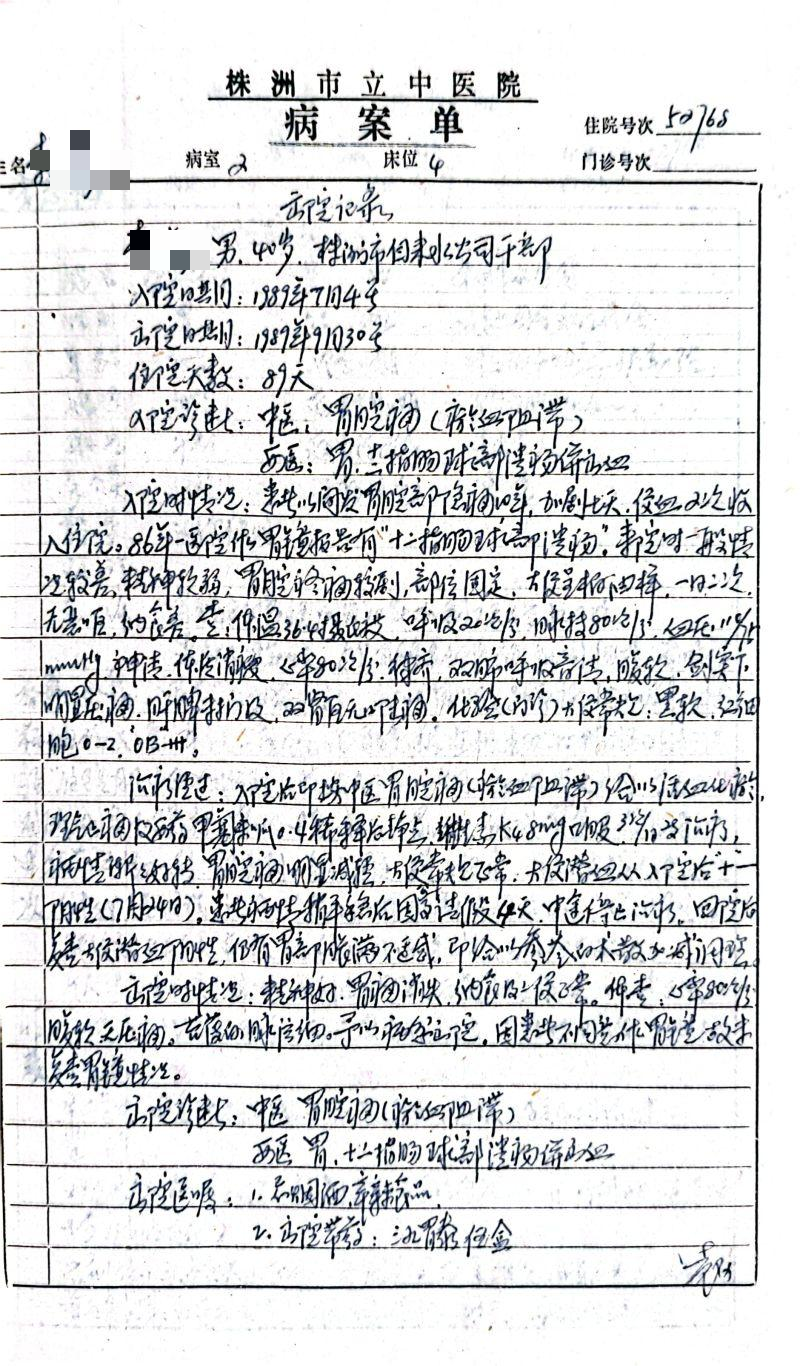 株洲市立中医院
病案单
住院号次 50768
名 病室 2 床位 4 门诊号次
出院记录
男、40岁、株洲市自来水公司干部
入院日期：1989年7月4号
出院日期：1989年9月30号
住院天数：89天
入院诊断：中医：胃脘痛（瘀血阻滞）
西医：胃、十二指肠球部溃疡併出血
入院时情况：患者以间发胃脘部隐痛10年，加剧七天，便血2次收
入住院。86年一医院作胃镜报告有“十二指肠球部溃疡”。来院时一般情
况较差，精神软弱，胃脘疼痛较剧，部位固定，大便呈柏油样，一日二次，
无恶呕，纳食差。查：体温36.4摄氏度，呼吸20次/分，脉搏80次/分，血压
mmHg，神清，体质消瘦，心率80次/分，律齐，双肺呼吸音清，腹软，剑突下
明显压痛，肝脾未扪及，双肾区无叩击痛。化验（门诊）大便常规：黑软，红细
胞0-2，OB+++。
治疗经过：入院后即按中医胃脘痛（瘀血阻滞）给以活血化瘀，
理气止痛及西药甲氰咪呱0.4稀释后静点，维生素K4 8mg口服 3次/日 等治疗，
病情逐步好转，胃脘痛明显减轻，大便常规正常，大便潜血从入院后“十一
阴性（7月24日）。患者病情稍平稳后因事请假4天，中途停止治疗，回院后
复查大便潜血阴性，仍有胃部胀满不适感，即给以参苓白术散加减调理。
出院时情况：精神好，胃痛消失，纳食及二便正常。体查：心率80次/分
腹软无压痛。苔薄白脉弦细。予以病愈出院，因患者不同意作胃镜故未
复查胃镜情况。
出院诊断：中医 胃脘痛（瘀血阻滞）
西医 胃、十二指肠球部溃疡併出血
出院医嘱：1. 忌烟酒，辛辣食品，
2. 出院带药：三九胃泰 伍盒